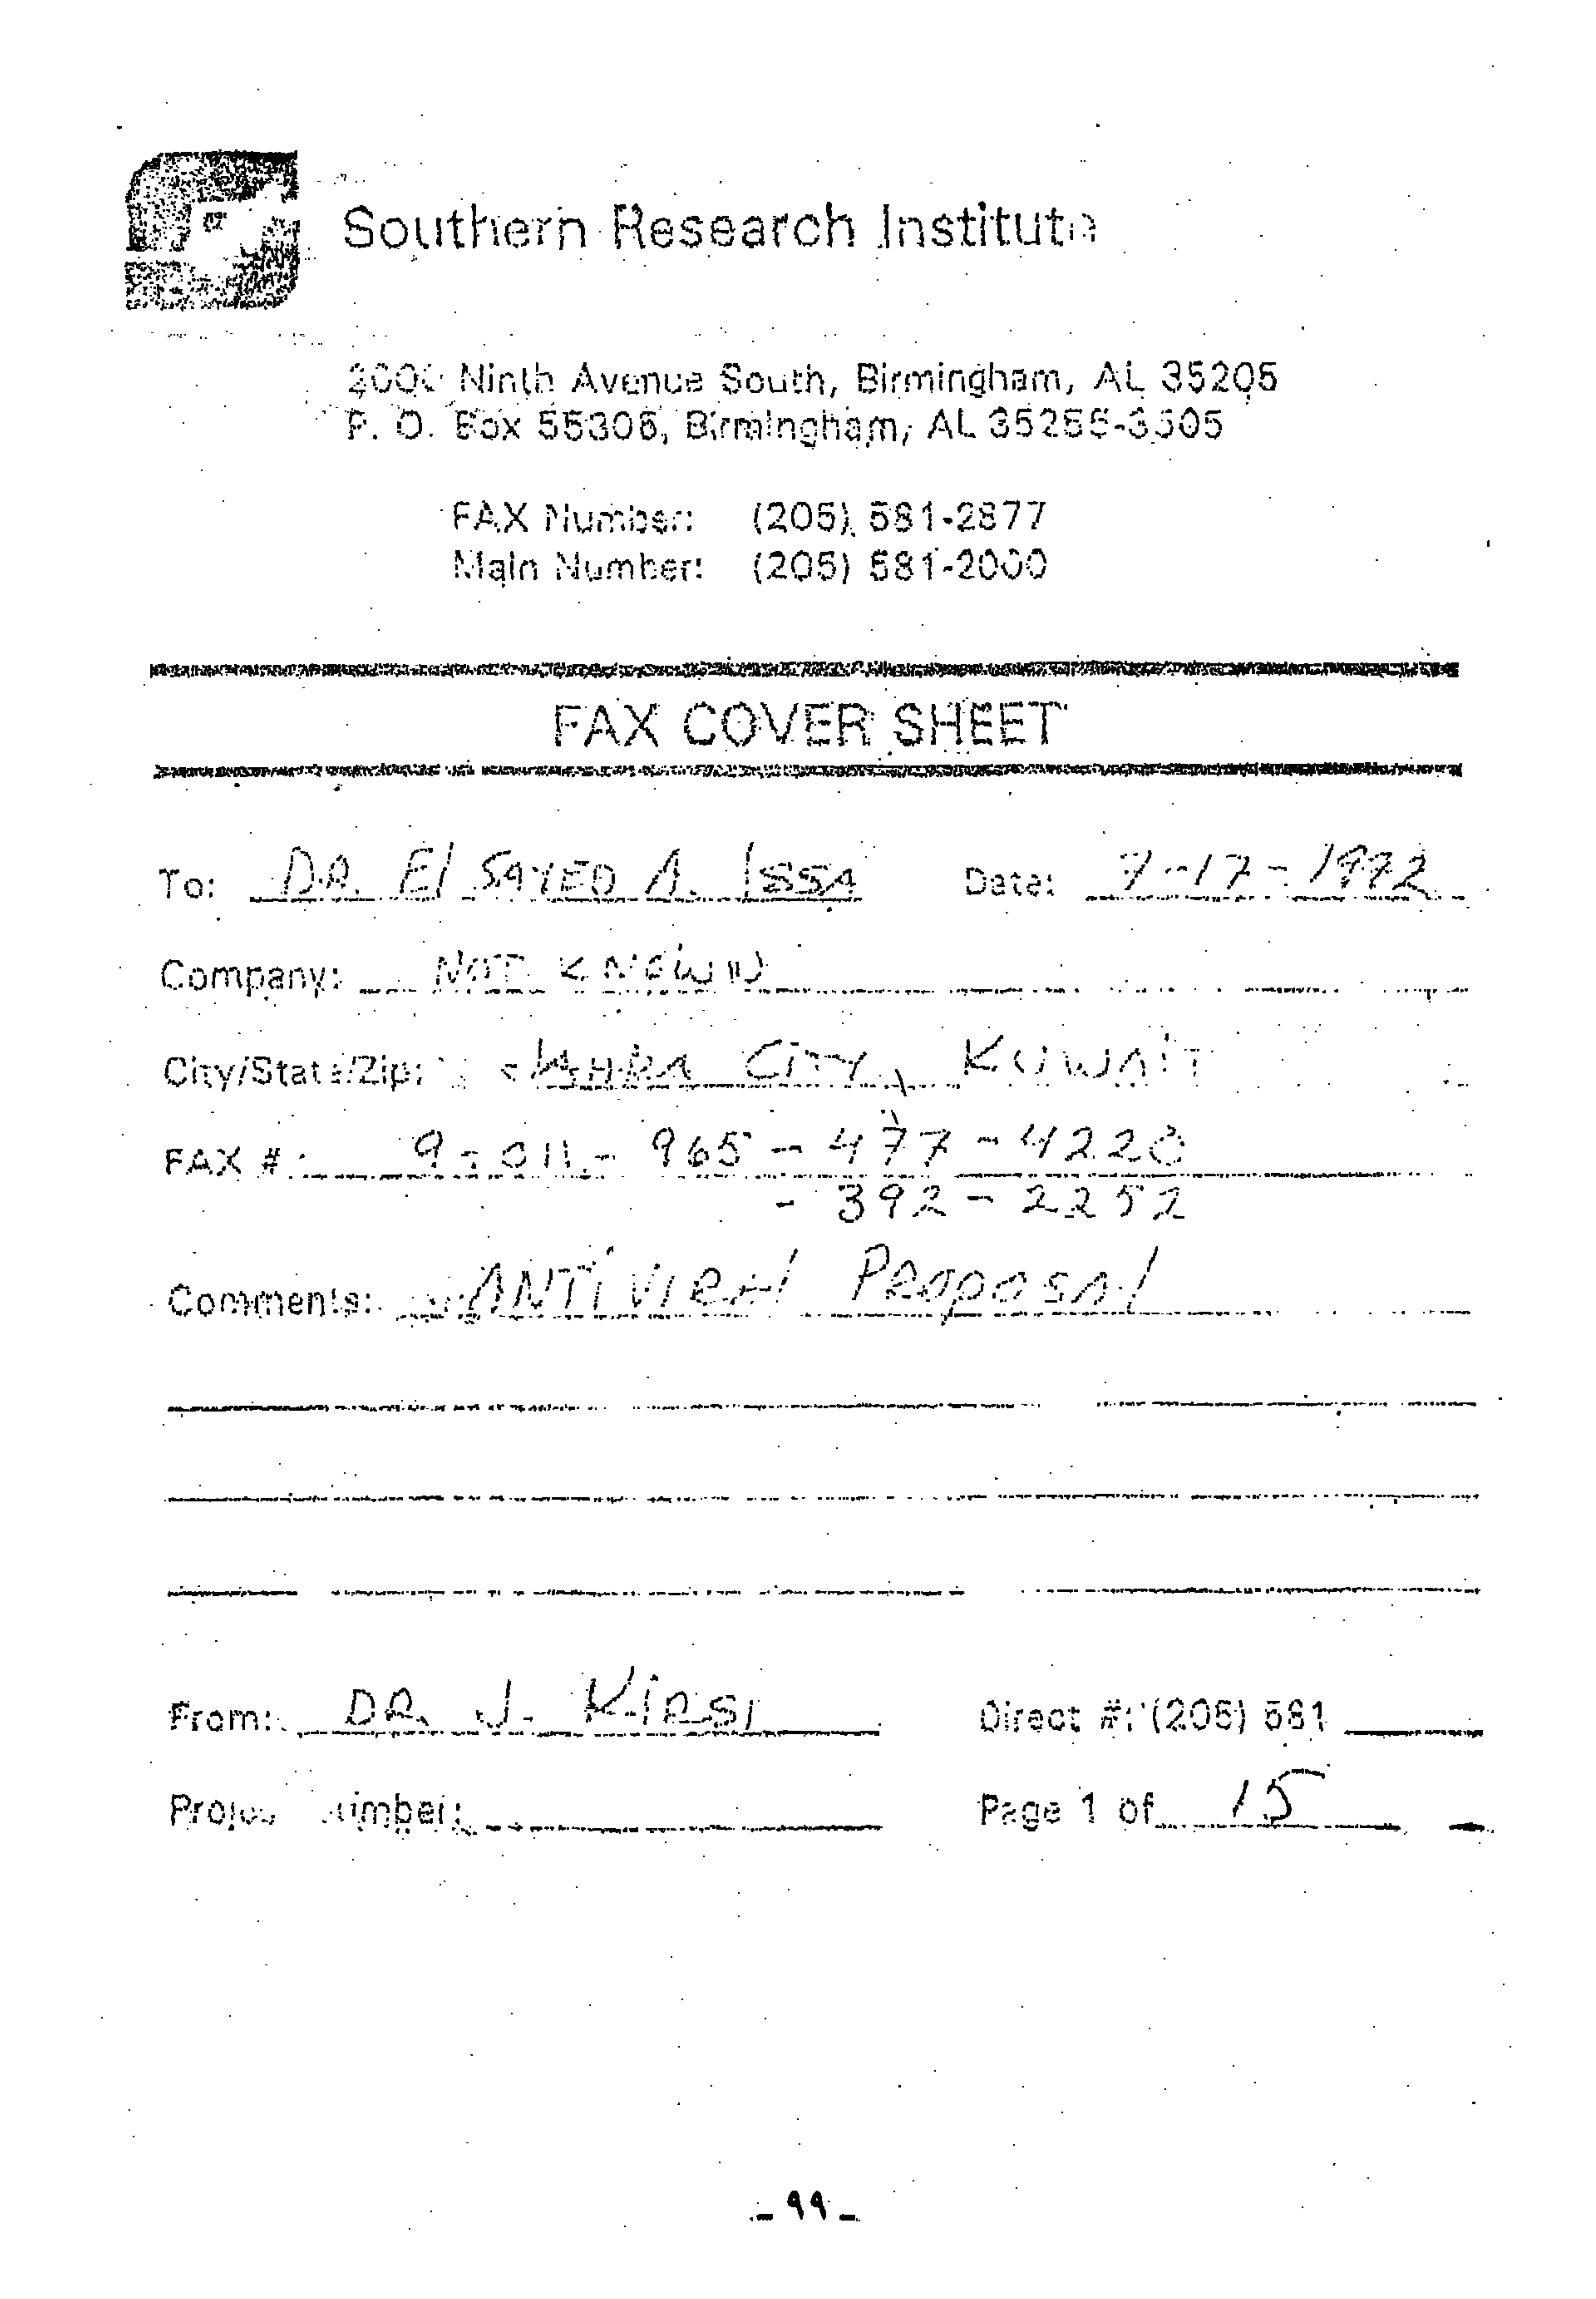 Southern Research Institute
2000 Ninth Avenue South, Birmingham, AL 35205
P. O. Box 55305, Birmingham, AL 35255-3505
FAX Number: (205) 581-2877
Main Number: (205) 581-2000
FAX COVER SHEET
To: DR. El SAYED A. ISSA Date: 7-17-1992
Company: NOT KNOWN
City/State/Zip: JAHRA CITY, KUWAIT
FAX #: 9-011-965-477-4220
- 392-2252
Comments: ANTIVIRAl PROPOSAl
From: DR. J. KIRSI Direct #: (205) 581
Project Number: Page 1 of 15
- ٩٩ -